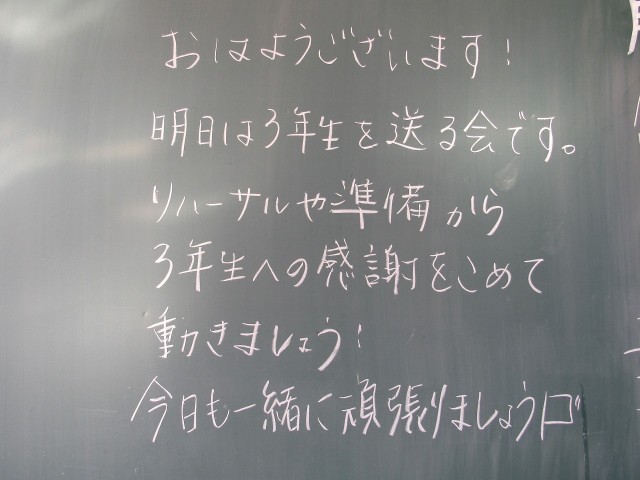 おはようございます!
明日は3年生を送る会です。
リハーサルや準備から
3年生への感謝をこめて
動きましょう!
今日も一緒に頑張りましょう